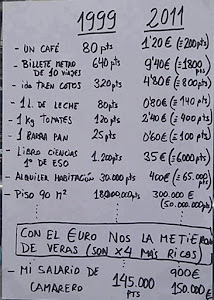 1999 2011
- UN CAFÉ 80 pts 1'20 € (=200 pts)
- BILLETE METRO 640 pts 9'40 € (=1800
DE 10 VIAJES pts)
- ida TREN COTOS 320 pts 4'80 € (=800 pts)
- 1 L. DE LECHE 80 pts 0'80 € (=140 pts)
- 1 Kg TOMATES 120 pts 2'40 € (=400 pts)
- 1 BARRA PAN 25 pts 0'60 € (=100 pts)
- LIBRO CIENCIAS 1.200 pts 35 € (=6000 pts)
1º DE ESO
- ALQUILER HABITACIÓN 30.000 pts 400 € (=65.000 pts)
- PISO 90 M² 18.000.000 pts 300.000 €
(50.000.000 pts)
CON EL €URO NOS LA METIERON
DE VERAS (SON X4 MÁS RICOS)
- MI SALARIO DE 145.000 900 €
CAMARERO pts 150.000